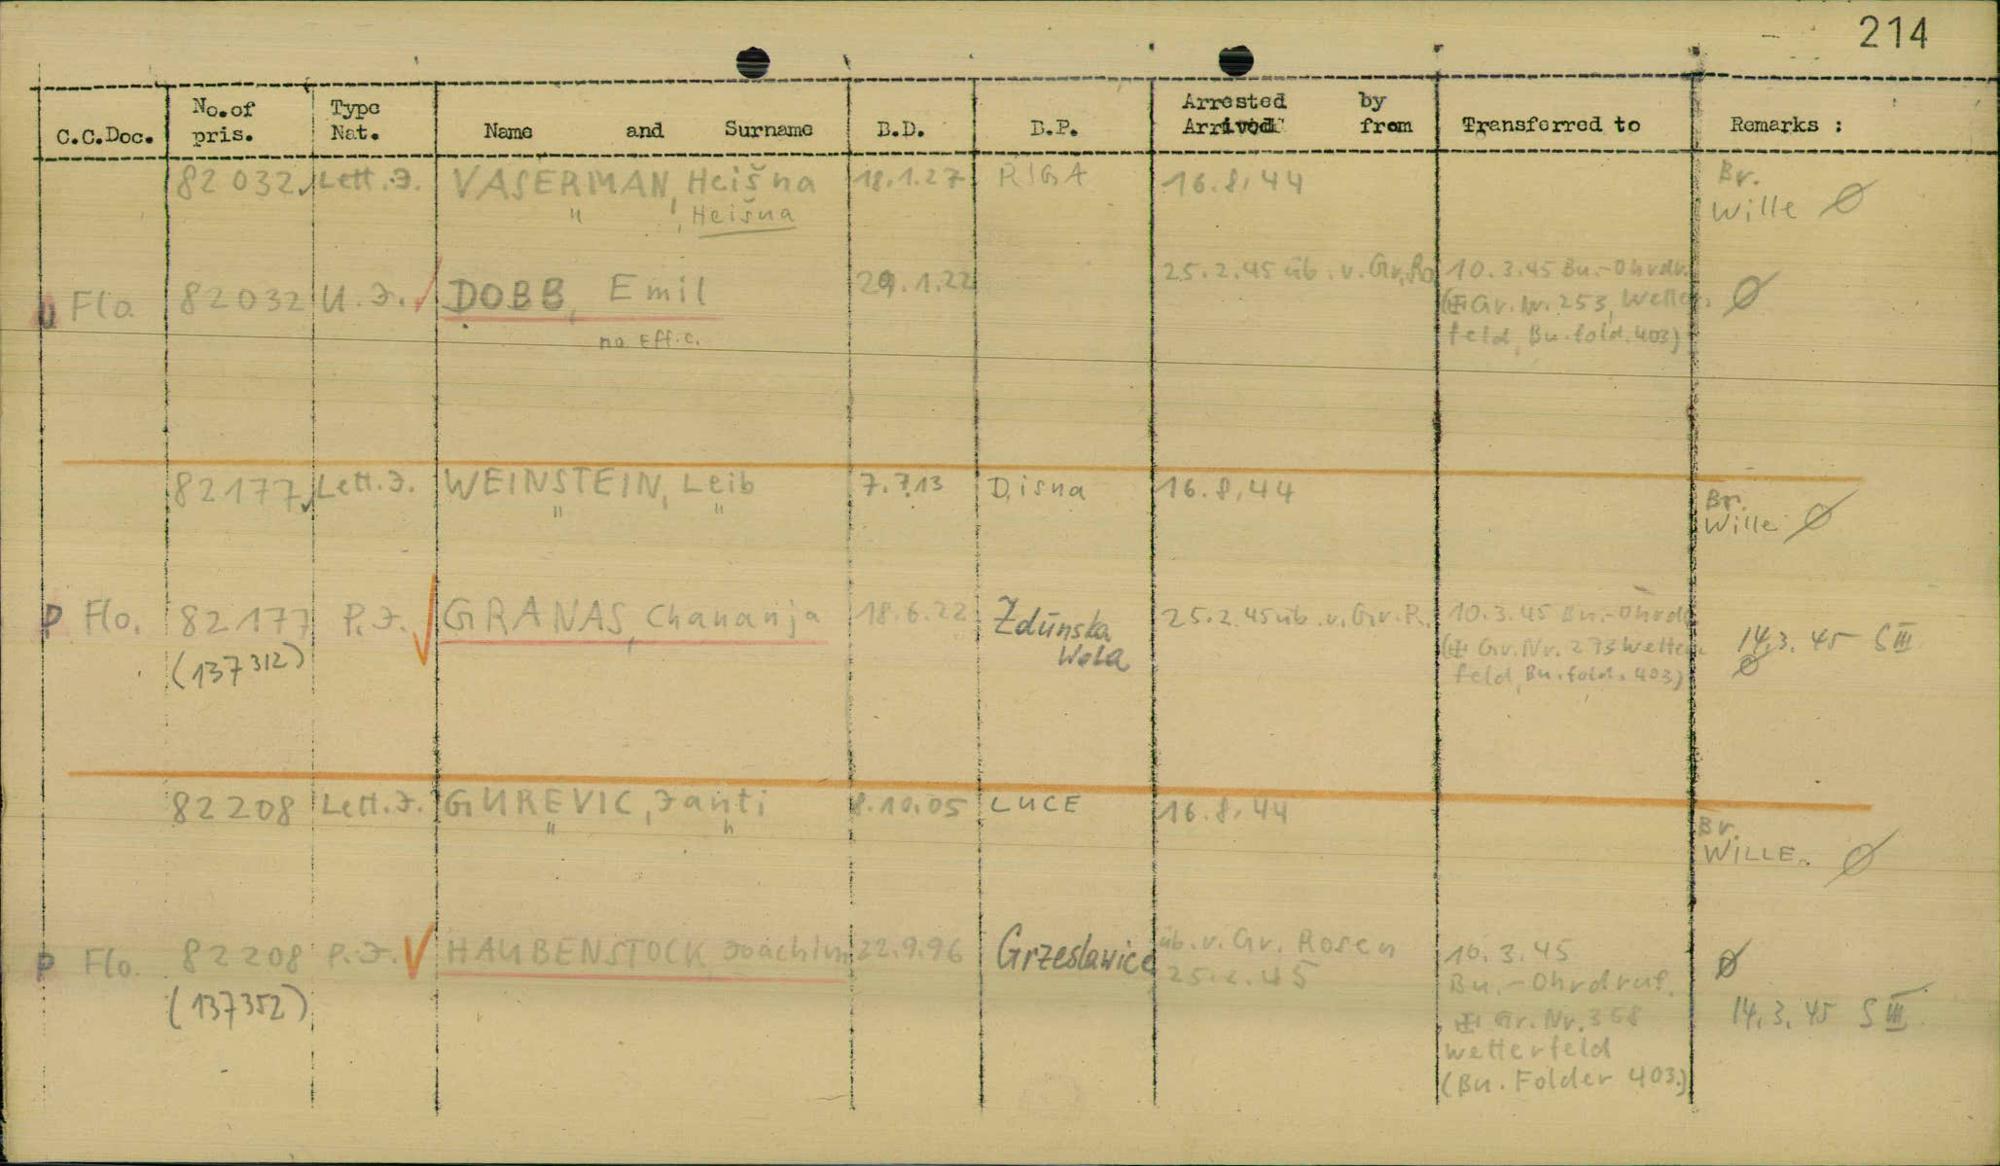 214
C.C.Doc. No.of pris. Type Nat. Name and Surname B.D. B.P. Arrested by Arrived from Transferred to Remarks :
82 032 Lett. J. VASERMAN, Heišna 18.1.27 RIGA 16.8.44 Br. Wille Ø
" , Heišna
U Flo. 82032 U. J. DOBB, Emil 29.1.22 25.2.45 üb. v. Gr. Ro 10.3.45 Bu.-Ohrdr. Ø
(⊞ Gr. Nr. 253, Wetter-
no Eff.c. feld, Bu. fold. 403)
82177 Lett. J. WEINSTEIN, Leib 7.7.13 Disna 16.8.44 Br. Wille Ø
" "
P Flo. 82177 P. J. GRANAS, Chananja 18.6.22 Zduńska Wola 25.2.45 üb. v. Gr. R. 10.3.45 Bu.-Ohrd
(137312) (⊞ Gr. Nr. 273 Wetter- 14.3.45 S III
feld, Bu. fold. 403) Ø
82208 Lett. J. GUREVIC, Janti 8.10.05 LUCE 16.8.44 Br. WILLE. Ø
" "
P Flo. 82208 P. J. HAUBENSTOCK Joachim 22.9.96 Grzeslawice üb. v. Gr. Rosen 10.3.45 Ø
(137352) 25.2.45 Bu.-Ohrdruf. 14.3.45 S III
⊞ Gr. Nr. 368
Wetterfeld
(Bu. Folder 403.)